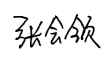 张会领